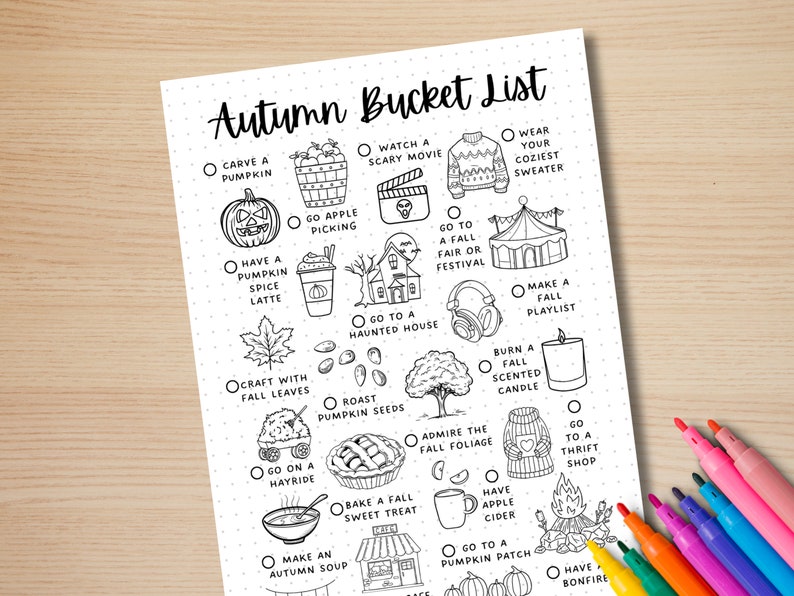 Autumn Bucket List
CARVE A
PUMPKIN
WATCH A
SCARY MOVIE
WEAR
YOUR
COZIEST
SWEATER
GO APPLE
PICKING
GO TO
A FALL
FAIR OR
FESTIVAL
HAVE A
PUMPKIN
SPICE
LATTE
GO TO A
HAUNTED HOUSE
MAKE A
FALL
PLAYLIST
CRAFT WITH
FALL LEAVES
ROAST
PUMPKIN SEEDS
BURN A
FALL
SCENTED
CANDLE
ADMIRE THE
FALL FOLIAGE
GO
TO A
THRIFT
SHOP
GO ON A
HAYRIDE
BAKE A FALL
SWEET TREAT
HAVE
APPLE
CIDER
MAKE AN
AUTUMN SOUP
CAFE
GO TO A
PUMPKIN PATCH
HAVE A
BONFIRE